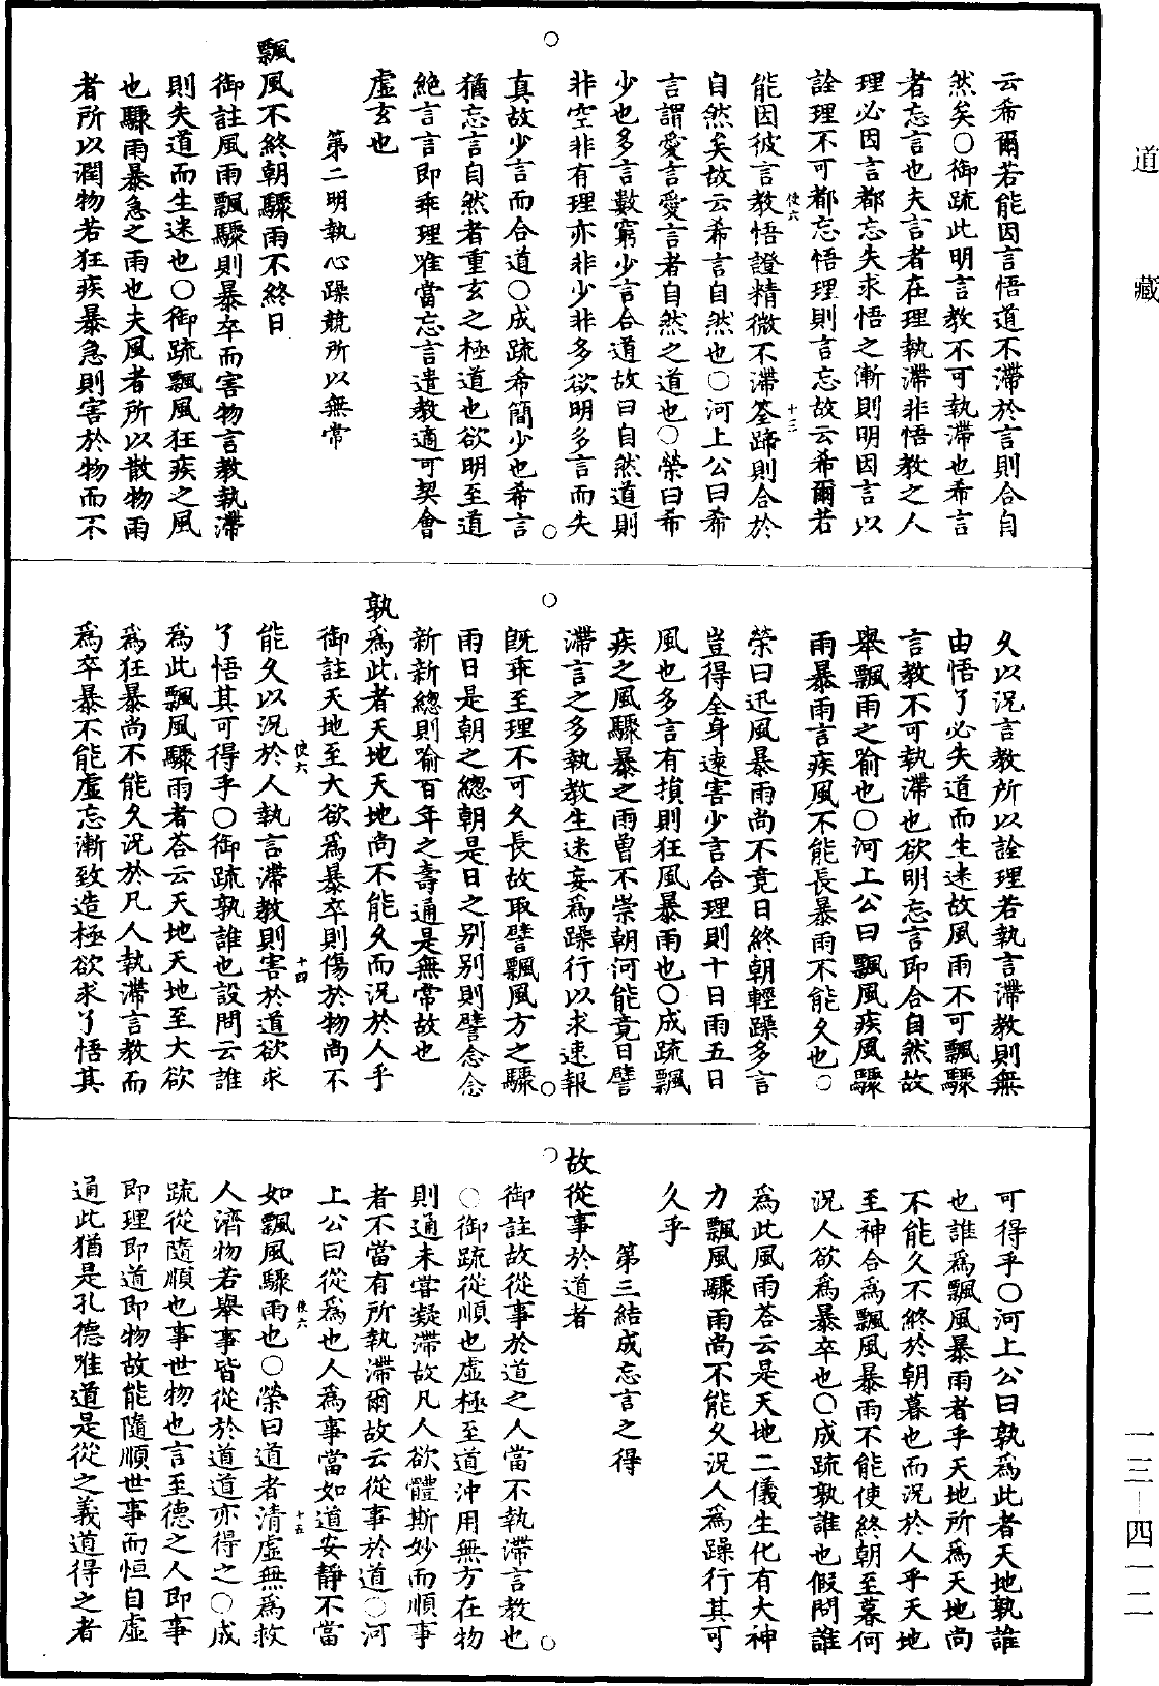 道藏
云希爾若能因言悟道不滯於言則合自
然矣○御疏此明言教不可執滯也希言
者忘言也夫言者在理執滯非悟教之人
理必因言都忘失求悟之漸則明因言以
詮理不可都忘悟理則言忘故云希爾若
能因彼言教悟證精微不滯筌蹄則合於
使六
十三
自然矣故云希言自然也○河上公曰希
言謂愛言愛言者自然之道也○榮曰希
少也多言數窮少言合道故曰自然道則
非空非有理亦非少非多欲明多言而失
真故少言而合道○成疏希簡少也希言
猶忘言自然者重玄之極道也欲明至道
絕言言即乖理唯當忘言遣教適可契會
虛玄也
第二明執心躁競所以無常
飄風不終朝驟雨不終日
御註風雨飄驟則暴卒而害物言教執滯
則失道而生迷也○御疏飄風狂疾之風
也驟雨暴急之雨也夫風者所以散物雨
者所以潤物若狂疾暴急則害於物而不
久以況言教所以詮理若執言滯教則無
由悟了必失道而生迷故風雨不可飄驟
言教不可執滯也欲明忘言即合自然故
舉飄雨之喻也○河上公曰飄風疾風驟
雨暴雨言疾風不能長暴雨不能久也○
榮曰迅風暴雨尚不竟日終朝輕躁多言
豈得全身遠害少言合理則十日雨五日
風也多言有損則狂風暴雨也○成疏飄
疾之風驟暴之雨曾不崇朝河能竟日譬
滯言之多執教生迷妄為躁行以求速報
既乖至理不可久長故取譬飄風方之驟
雨日是朝之總朝是日之別別則譬念念
新新總則喻百年之壽通是無常故也
孰為此者天地天地尚不能久而況於人乎
御註天地至大欲為暴卒則傷於物尚不
能久以況於人執言滯教則害於道欲求
使六
十四
了悟其可得乎○御疏孰誰也設問云誰
為此飄風驟雨者荅云天地天地至大欲
為狂暴尚不能久況於凡人執滯言教而
為卒暴不能虛忘漸致造極欲求了悟其
可得乎○河上公曰孰為此者天地孰誰
也誰為飄風暴雨者乎天地所為天地尚
不能久不終於朝暮也而況於人乎天地
至神合為飄風暴雨不能使終朝至暮何
況人欲為暴卒也○成疏孰誰也假問誰
為此風雨荅云是天地二儀生化有大神
力飄風驟雨尚不能久況人為躁行其可
久乎
第三結成忘言之得
故從事於道者
御註故從事於道之人當不執滯言教也
○御疏從順也虛極至道沖用無方在物
則通未嘗凝滯故凡人欲體斯妙而順事
者不當有所執滯爾故云從事於道○河
上公曰從為也人為事當如道安靜不當
如飄風驟雨也○榮曰道者清虛無為救
使六
十五
人濟物若舉事皆從於道道亦得之○成
疏從隨順也事世物也言至德之人即事
即理即道即物故能隨順世事而恒自虛
通此猶是孔德唯道是從之義道得之者
一三—四一二